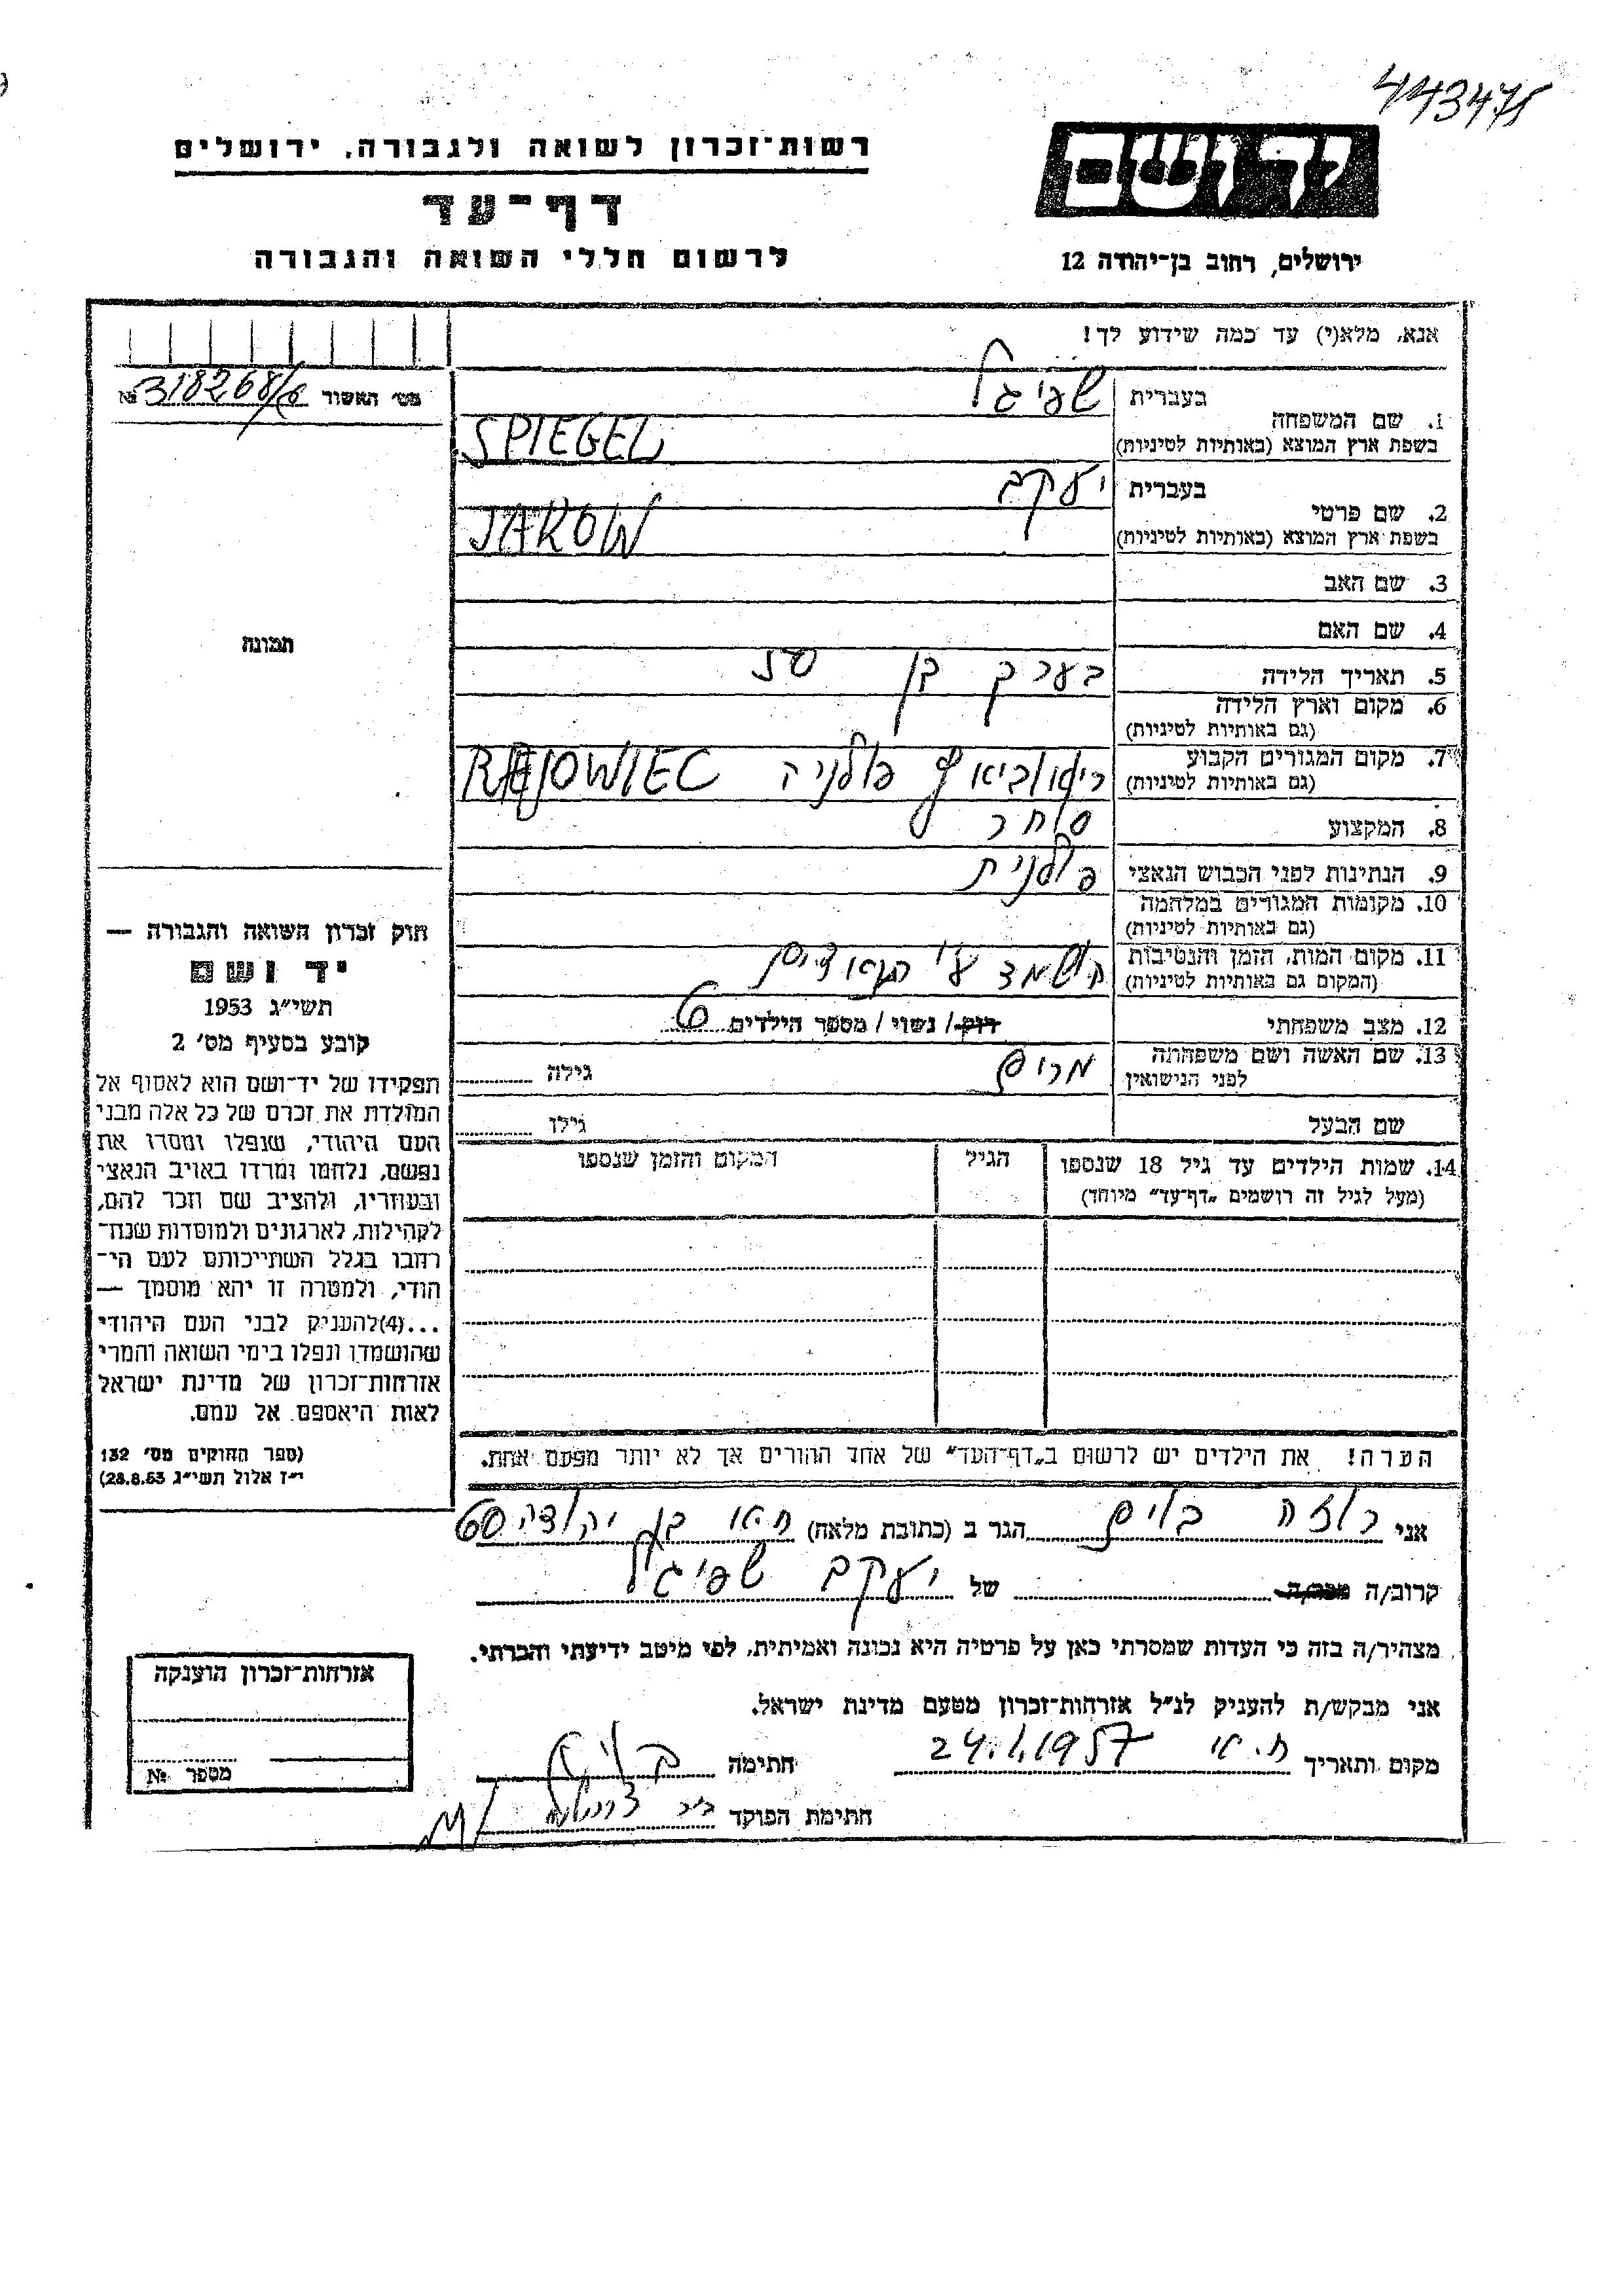 443475
רשות־זכרון לשואה ולגבורה, ירושלים
דף־עד
לרשום חללי השואה והגבורה
יד ושם
ירושלים, רחוב בן־יהודה 12
אנא, מלא(י) עד כמה שידוע לך!
מס׳ האשור 318268/6 №
תמונה
חוק זכרון השואה והגבורה —
יד ושם
תשי״ג 1953
קובע בסעיף מס׳ 2
תפקידו של יד־ושם הוא לאסוף אל
המולדת את זכרם של כל אלה מבני
העם היהודי, שנפלו ומסרו את
נפשם, נלחמו ומרדו באויב הנאצי
ובעוזריו, ולהציב שם וזכר להם,
לקהילות, לארגונים ולמוסדות שנח־
רחבו בגלל השתייכותם לעם הי־
הודי, ולמטרה זו יהא מוסמך —
...(4) להעניק לבני העם היהודי
שהושמדו ונפלו בימי השואה והמרי
אזרחות־זכרון של מדינת ישראל
לאות היאספם אל עמם.
(ספר החוקים מס׳ 132
י״ז אלול תשי״ג 28.8.53)
בעברית שפיגל
1. שם המשפחה
בשפת ארץ המוצא (באותיות לטיניות) SPIEGEL
בעברית יעקב
2. שם פרטי
בשפת ארץ המוצא (באותיות לטיניות) JAKOW
3. שם האב
4. שם האם
5. תאריך הלידה בערך בן 50
6. מקום וארץ הלידה
(גם באותיות לטיניות)
7. מקום המגורים הקבוע
(גם באותיות לטיניות) פולניה REJOWIEC
8. המקצוע סוחר
9. הנתינות לפני הכבוש הנאצי פולנית
10. מקומות המגורים במלחמה
(גם באותיות לטיניות)
11. מקום המות, הזמן והנסיבות
(המקום גם באותיות לטיניות) הושמד ע״י הנאצים
12. מצב משפחתי רוק / נשוי / מספר הילדים 6
13. שם האשה ושם משפחתה
לפני הנישואין מרים גילה
שם הבעל גילו
14. שמות הילדים עד גיל 18 שנספו הגיל המקום והזמן שנספו
(מעל לגיל זה רושמים „דף־עד״ מיוחד)
הערה! את הילדים יש לרשום ב„דף־העד״ של אחד ההורים אך לא יותר מפעם אחת.
אני רוזה בוים הגר ב (כתובת מלאה) ת״א בן יהודה 60
קרוב/ה מכר/ה של יעקב שפיגל
מצהיר/ה בזה כי העדות שמסרתי כאן על פרטיה היא נכונה ואמיתית, לפי מיטב ידיעתי והכרתי.
אני מבקש/ת להעניק לנ״ל אזרחות־זכרון מטעם מדינת ישראל.
מקום ותאריך ת.א 24.1.1957 חתימה
חתימת הפוקד
אזרחות־זכרון הוענקה
מספר №